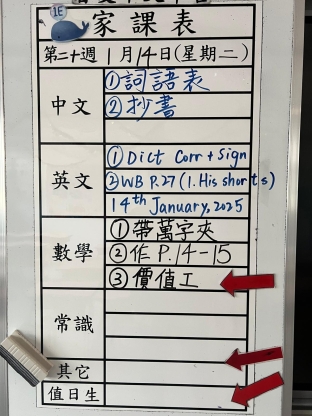 1E
家課表
第二十週 1月14日(星期二)
中文
①詞語表
②抄書
英文
① Dict Corr + Sign
② WB P.27 (1. His shorts)
14th January, 2025
數學
① 帶萬字夾
② 作 P.14-15
③ 價值工
常識
其它
值日生